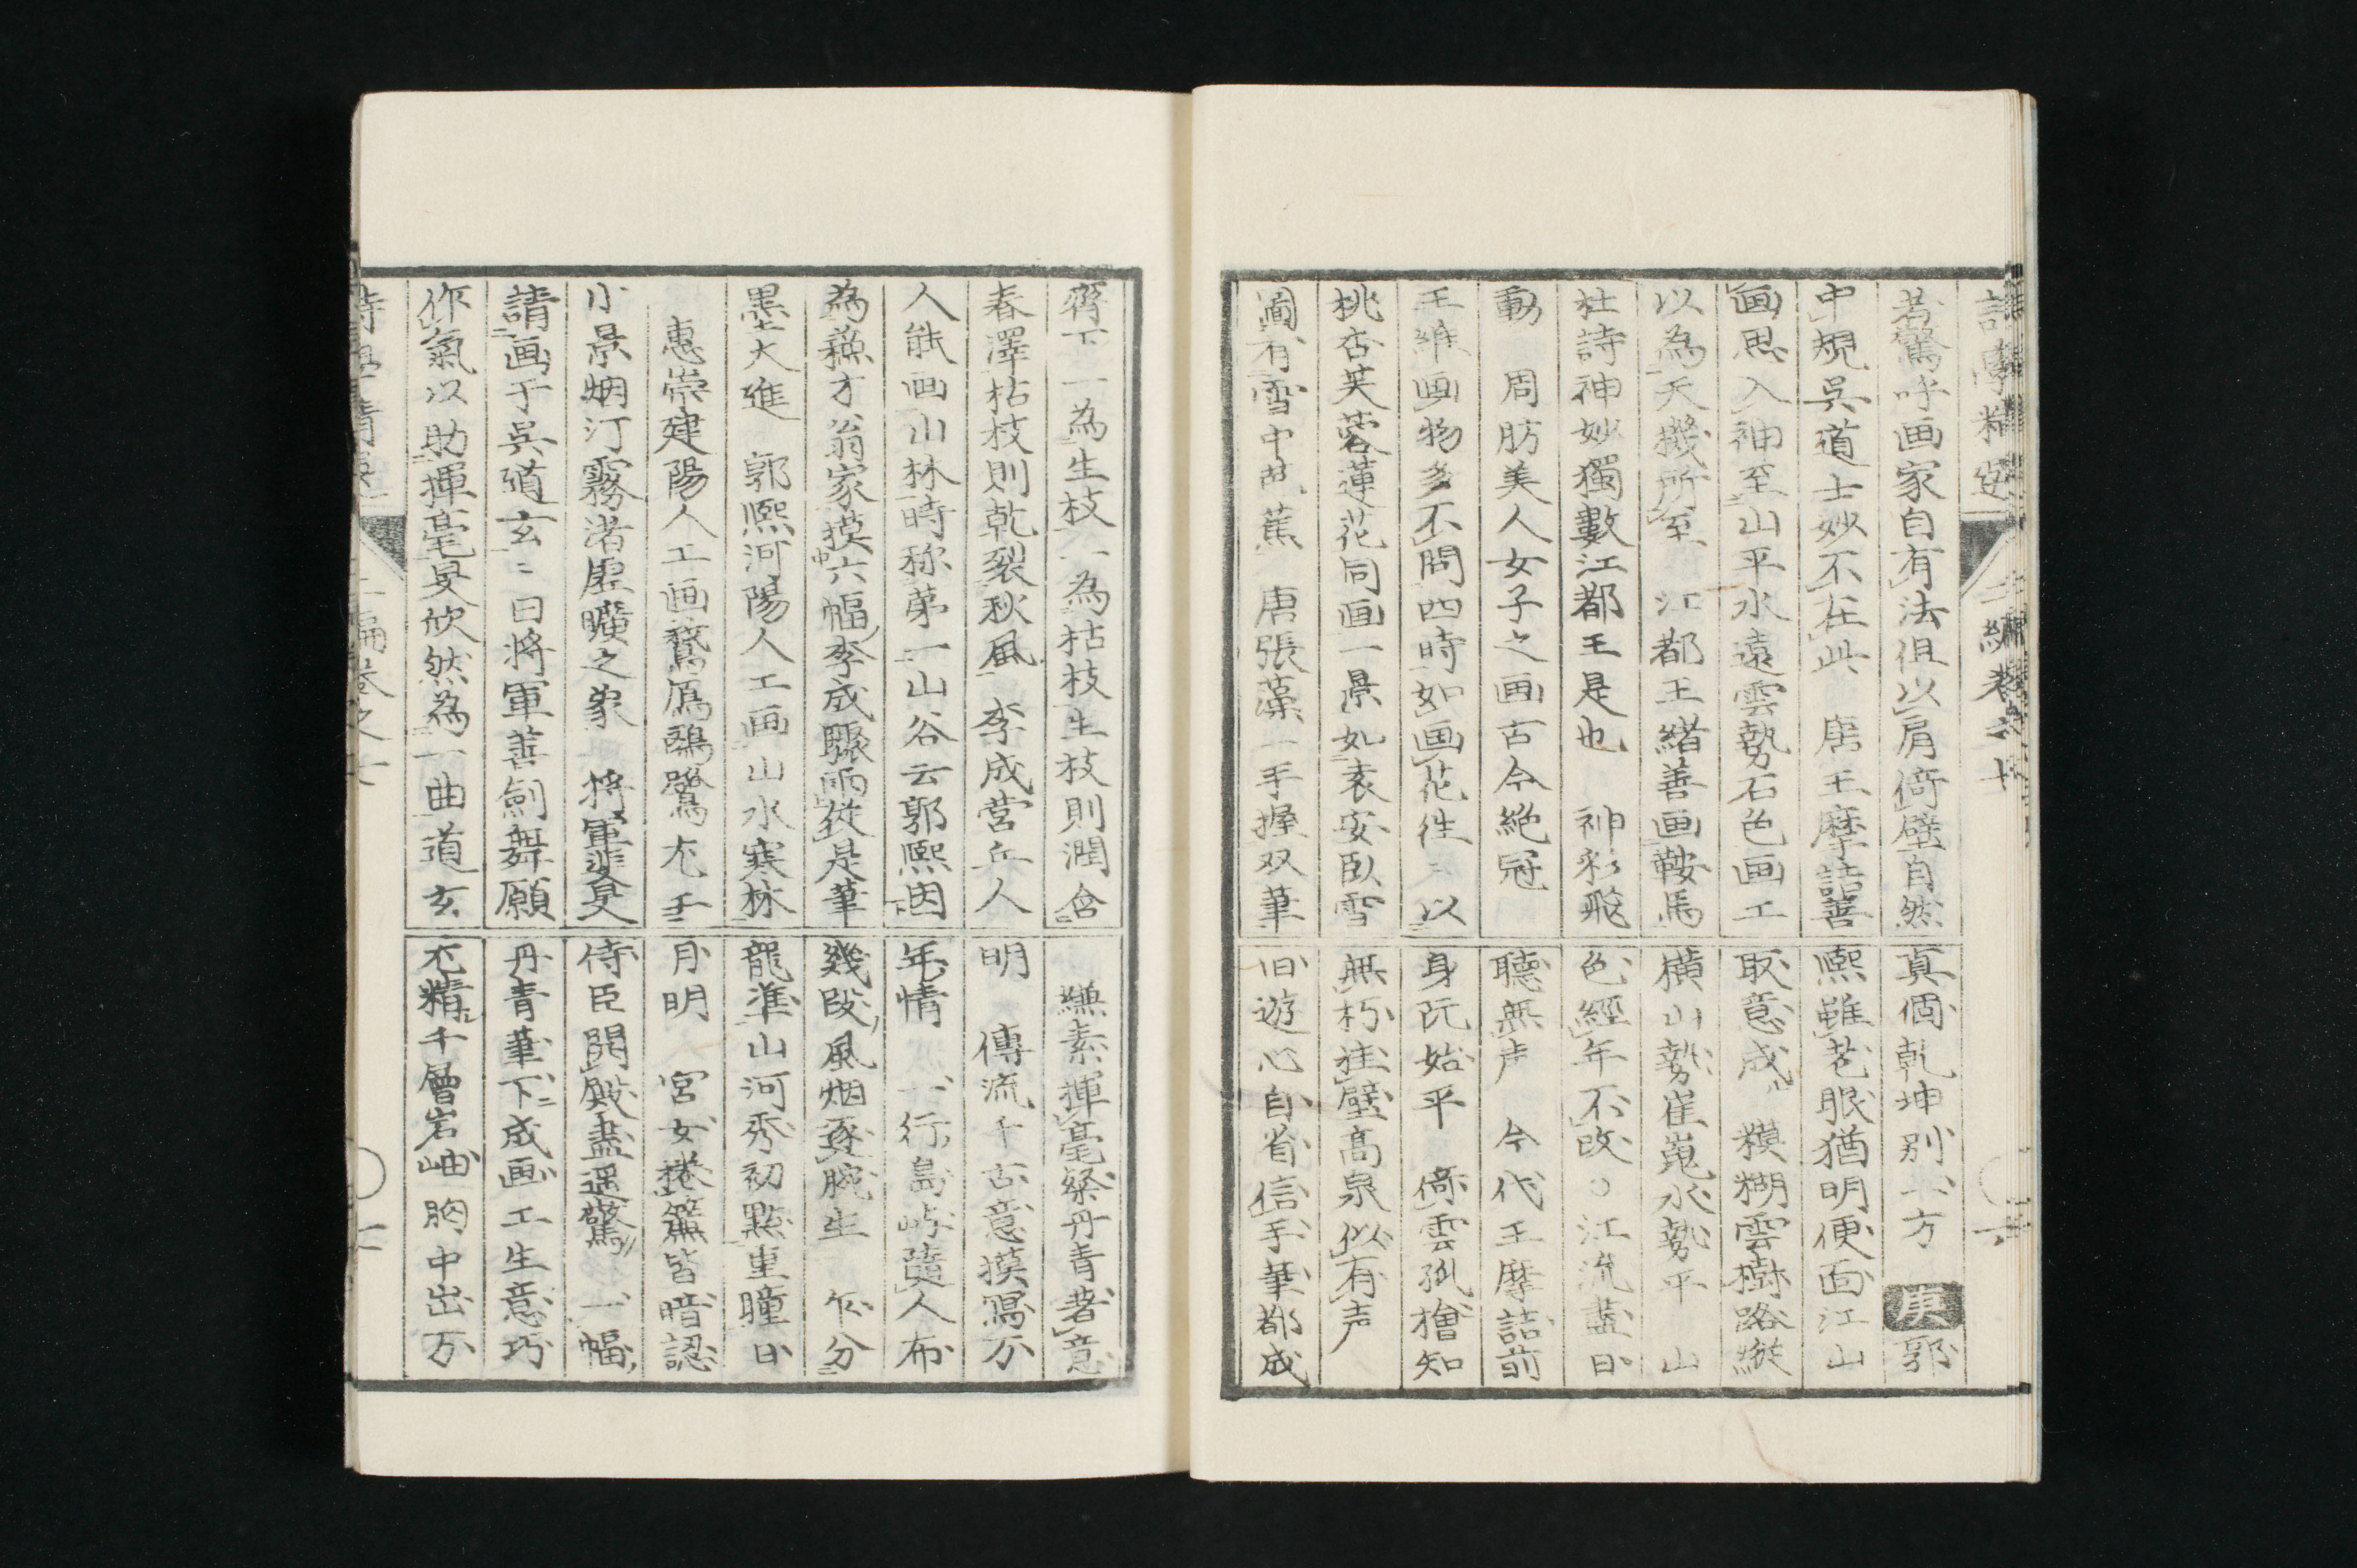 若驚呼画家自有法但以肩倚壁自然
中規呉道士妙不在此　唐王摩詰善
画思入神至山平水遠雲勢石色画工
以為天機所至　江都王緒善画鞍馬
杜詩神妙獨數江都王是也　神彩飛
動　周肪美人女子之画古今絶冠
王維画物多不問四時如画花往〻以
桃杏芙蓉蓮花同画一景如袁安臥雪
圖有雪中芭蕉　唐張藻一手握双筆
真個乾坤别一方　庚郭
熙雖老眼猶明便面江山
取意成　糢糊雲樹路縦
横山勢崔嵬水勢平　山
色經年不改○江流盡日
聴無声　今代王摩詰前
身阮始平　倚雲孤檜知
無朽挂壁高泉似有声
旧遊心自省信手筆都成
齊下一為生枝一為枯枝生枝則潤含
春澤枯枝則乾裂秋風　李成営丘人
人能画山林時称第一山谷云郭熙因
為蘇才翁家摸六幅李成驟雨從是筆
墨大進　郭熙河陽人工画山水寒林
惠崇建陽人工画鵞鴈鷗鷺尤工
小景烟汀霧渚虚曠之象　將軍裴旻
請画于呉道玄〻曰將軍善劍舞願
作氣以助揮毫旻欣然為一曲道玄
縑素揮毫粲丹青著意
明　傳流千古意摸寫万
年情　一行島嶼隨人布
幾段風烟逐腕生　乍分
龍準山河秀初點重瞳日
月明　宮女捲簾皆暗認
侍臣開殿盡遥驚　一幅
丹青筆下成画工生意巧
尤精千層岩岫胸中出万